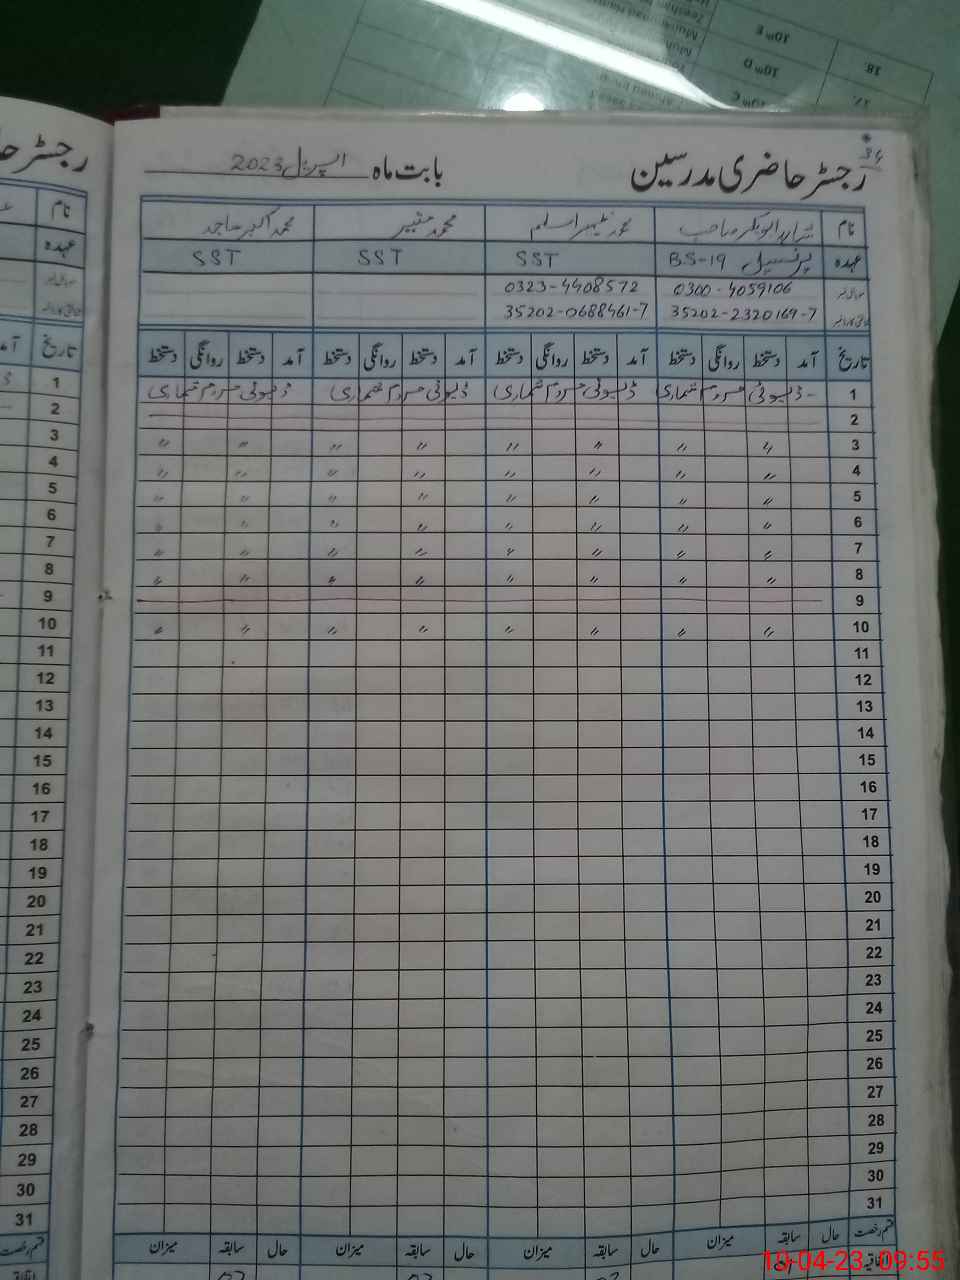 رجسٹر حاضری مدرسین بابت ماہ اپریل 2023
نام محمد اکبر ساجد
عہدہ پرنسپل BS-19 SST SST SST
0300-4059106 0323-4408572
35202-2320169-7 35202-0688461-7
تاریخ آمد دستخط روانگی دستخط آمد دستخط روانگی دستخط آمد دستخط روانگی دستخط آمد دستخط روانگی دستخط
1 ڈیوٹی مردم شماری ڈیوٹی مردم شماری ڈیوٹی مردم شماری ڈیوٹی مردم شماری
2
3 〃 〃 〃 〃 〃 〃 〃 〃
4 〃 〃 〃 〃 〃 〃 〃 〃
5 〃 〃 〃 〃 〃 〃 〃 〃
6 〃 〃 〃 〃 〃 〃 〃 〃
7 〃 〃 〃 〃 〃 〃 〃 〃
8 〃 〃 〃 〃 〃 〃 〃 〃
9
10 〃 〃 〃 〃 〃 〃 〃 〃
11
12
13
14
15
16
17
18
19
20
21
22
23
24
25
26
27
28
29
30
31
قسم رخصت حال سابقہ میزان حال سابقہ میزان حال سابقہ میزان حال سابقہ میزان
اتفاقیہ
نام
عہدہ
تاریخ
1
2
3
4
5
6
7
8
9
10
11
12
13
14
15
16
17
18
19
20
21
22
23
24
25
26
27
28
29
30
31
قسم رخصت
18. 10th D
10th E
10-04-23 09:55